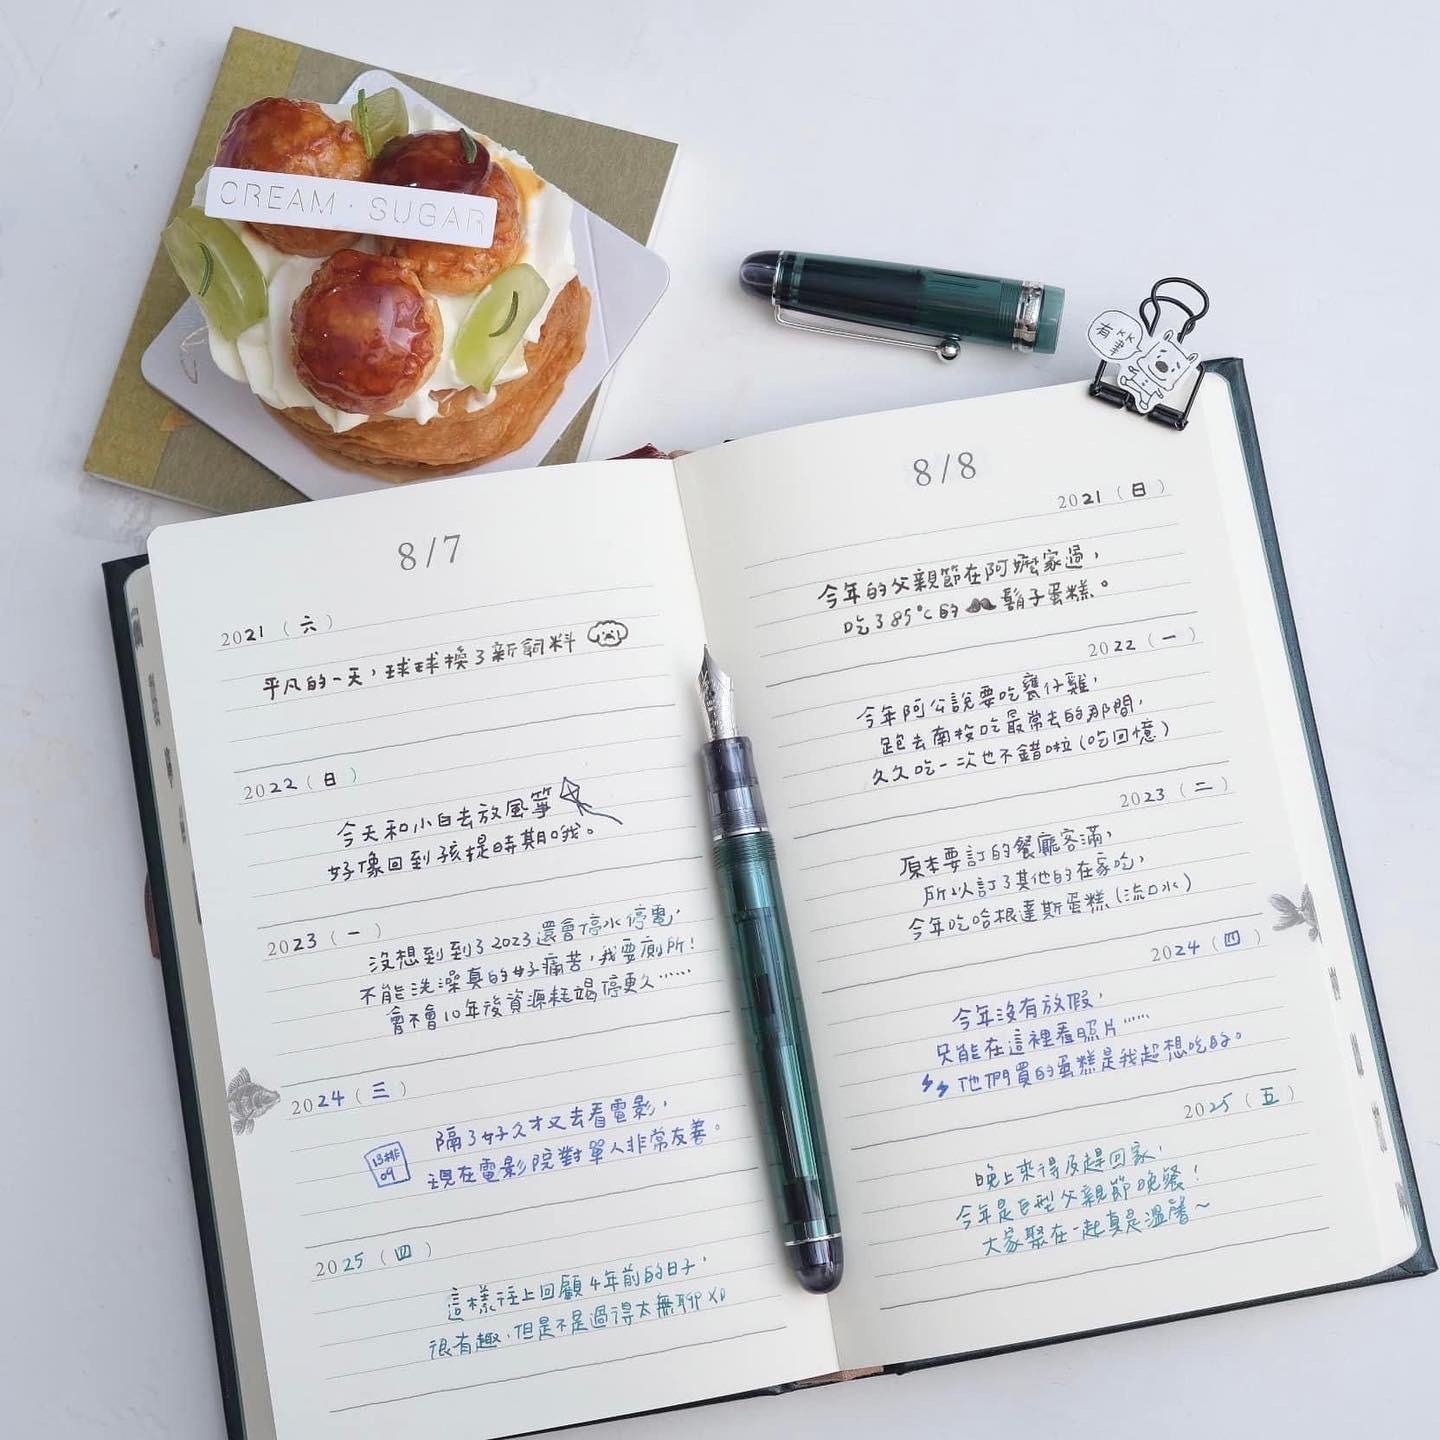 CREAM · SUGAR
有夢
8/7
2021 (六)
平凡的一天，球球換了新飼料
2022 (日)
今天和小白去放風箏
好像回到孩提時期哦。
2023 (一)
沒想到到了2023還會停水停電，
不能洗澡真的好痛苦，我要廁所！
會不會10年後資源耗竭停更久……
2024 (三)
隔了好久才又去看電影，
現在電影院對單人非常友善。
13排
09
2025 (四)
這樣往上回顧4年前的日子，
很有趣，但是不是過得太無聊XD
8/8
2021 (日)
今年的父親節在阿嬤家過，
吃了85°C的鬍子蛋糕。
2022 (一)
今年阿公說要吃甕仔雞，
跑去南投吃最常去的那間，
久久吃一次也不錯啦(吃回憶)
2023 (二)
原本要訂的餐廳客滿，
所以訂了其他的在家吃，
今年吃哈根達斯蛋糕(流口水)
2024 (四)
今年沒有放假，
只能在這裡看照片……
他們買的蛋糕是我超想吃的。
2025 (五)
晚上來得及趕回家，
今年是巨型父親節晚餐！
大家聚在一起真是溫馨～